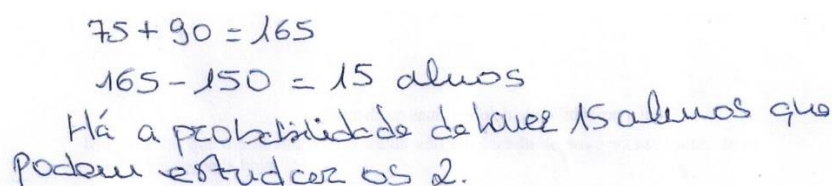 75 + 90 = 165
165 - 150 = 15 alunos
Há a probabilidade de haver 15 alunos que
podem estudar os 2.